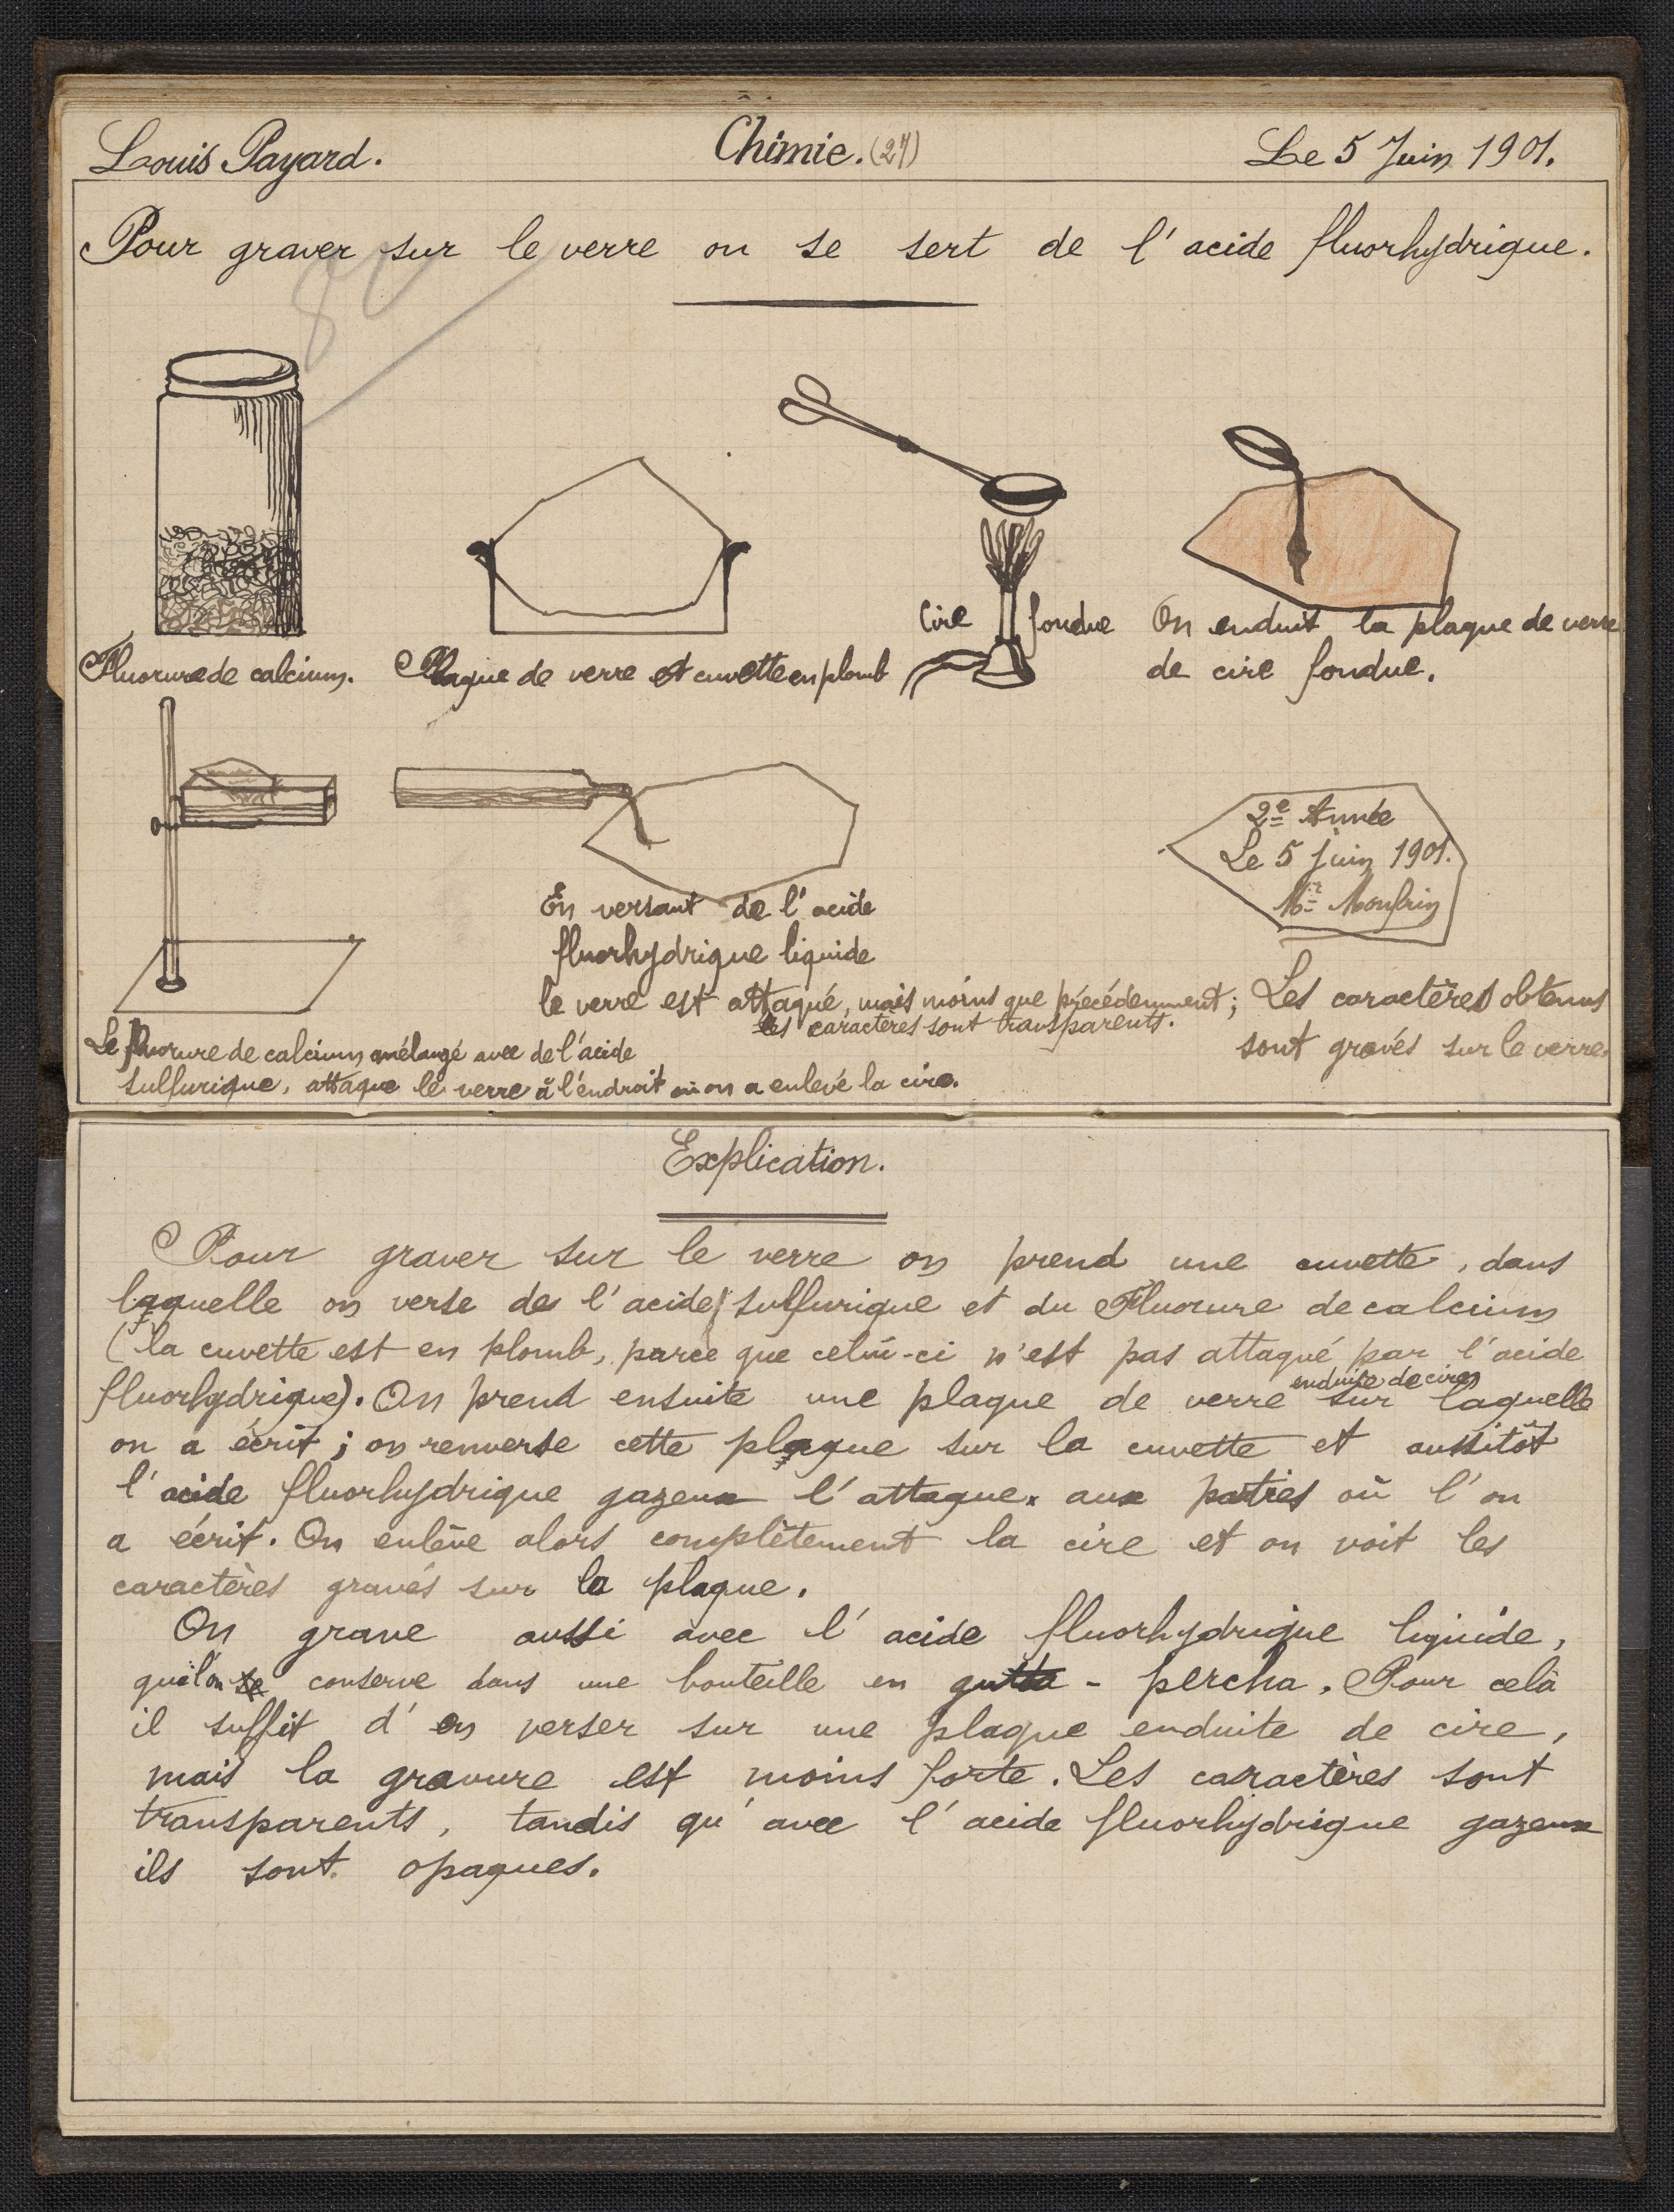 Louis Payard.
Chimie. (27)
Le 5 Juin 1901.
Pour graver sur le verre on se sert de l'acide fluorhydrique.
Fluorure de calcium.
Plaque de verre et cuvette en plomb
Cire fondue
On enduit la plaque de verre
de cire fondue.
Le fluorure de calcium mélangé avec de l'acide
sulfurique, attaque le verre à l'endroit où on a enlevé la cire.
En versant de l'acide
fluorhydrique liquide
le verre est attaqué, mais moins que précédemment;
les caractères sont transparents.
2e Année
Le 5 juin 1901.
Mr
Les caractères obtenus
sont gravés sur le verre.
Explication.
Pour graver sur le verre on prend une cuvette, dans
laquelle on verse de l'acide sulfurique et du Fluorure de calcium
(la cuvette est en plomb, parce que celui-ci n'est pas attaqué par l'acide
fluorhydrique). On prend ensuite une plaque de verre enduite de cire, sur laquelle
on a écrit; on renverse cette plaque sur la cuvette et aussitôt
l'acide fluorhydrique gazeux l'attaque aux parties où l'on
a écrit. On enlève alors complètement la cire et on voit les
caractères gravés sur la plaque.
On grave aussi avec l'acide fluorhydrique liquide,
que l'on conserve dans une bouteille en gutta-percha. Pour celà
il suffit d'en verser sur une plaque enduite de cire,
mais la gravure est moins forte. Les caractères sont
transparents, tandis qu'avec l'acide fluorhydrique gazeux
ils sont opaques.